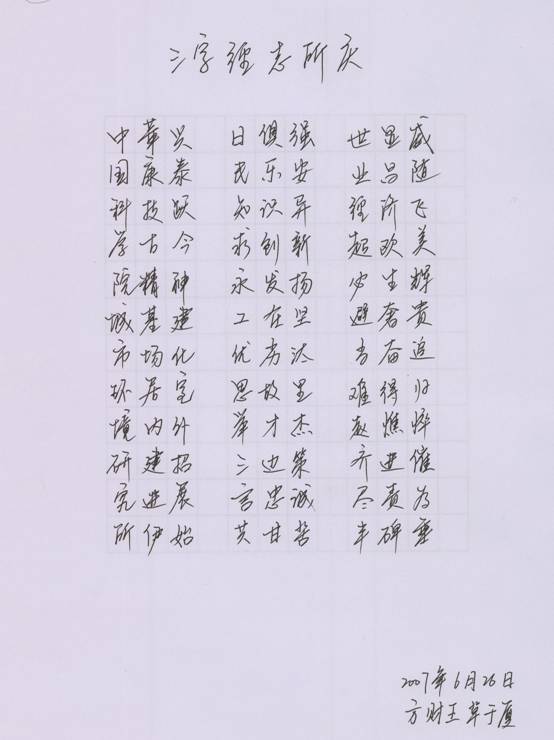 三字经志所庆
中华兴 日俱强 世显威
国康泰 民乐安 业昌随
科技跃 知识异 经济飞
学古今 求创新 超欧美
院精神 永发扬 必生辉
城基建 工在坚 避奢贵
市场化 优劣汰 当奋追
环居宅 思故里 难得归
境内外 举才杰 赵憔悴
研建招 三边策 齐进催
究进展 言忠诚 尽责为
所伊始 共甘苦 丰碑垂
2007年6月26日
方财王草于厦